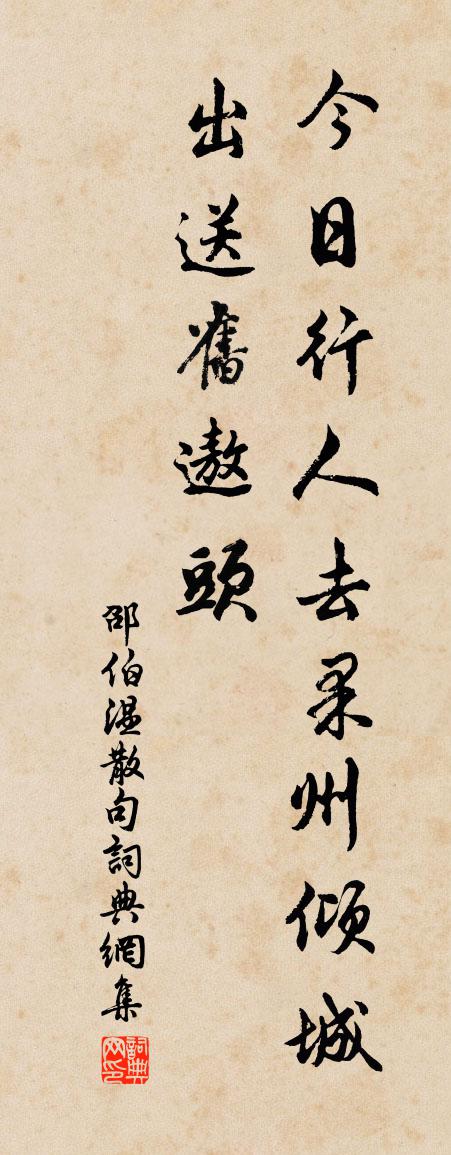 今日行人去果州傾城
出送舊遨頭
邵伯温散句詞典網集
詞典网印